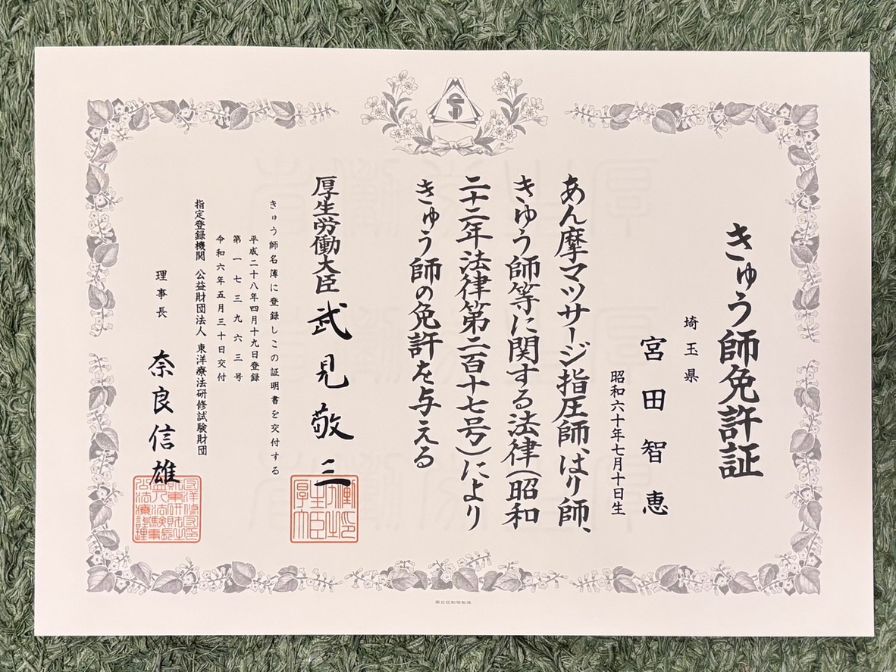 きゅう師免許証
埼玉県
宮田智恵
昭和六十年七月十日生
あん摩マツサージ指圧師、はり師、
きゆう師等に関する法律(昭和
二十二年法律第二百十七号)により
きゅう師の免許を与える
厚生労働大臣 武見敬三
きゅう師名簿に登録しこの証明書を交付する
平成二十八年四月十九日登録
第一七三九六三号
令和六年五月三十日交付
指定登録機関 公益財団法人 東洋療法研修試験財団
理事長 奈良信雄